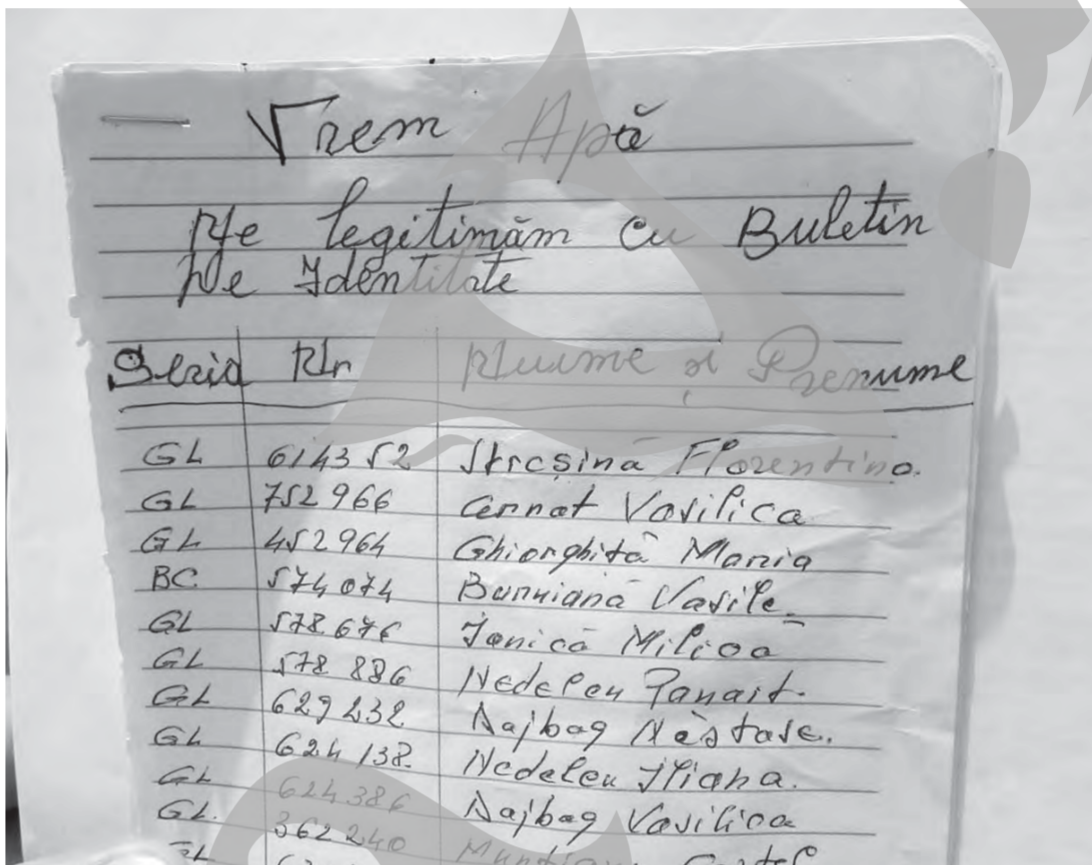 Vrem Apă
Ne legitimăm cu Buletin
De Identitate
Seria Nr Nume și Prenume
GL 614352 Streșină Florentina.
GL 752966 Cernat Vasilica
GL 452964 Ghiorghită Maria
BC 574074 Vasile
GL 578676 Ionică Milica
GL 578 886 Nedelcu Panait.
GL 629232 Dajbog Năstase.
GL 624138. Nedelcu Iliana.
GL 624386 Dajbog Vasilica
GL. 362240
GL